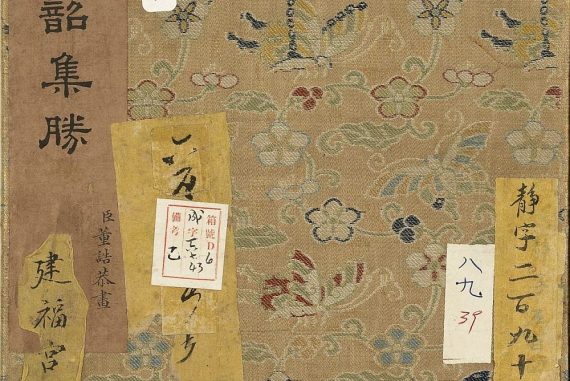 韶集勝
臣董誥恭畫
建福宮
箱號D6
成字
備考
乙
八九
39
靜字二百九十